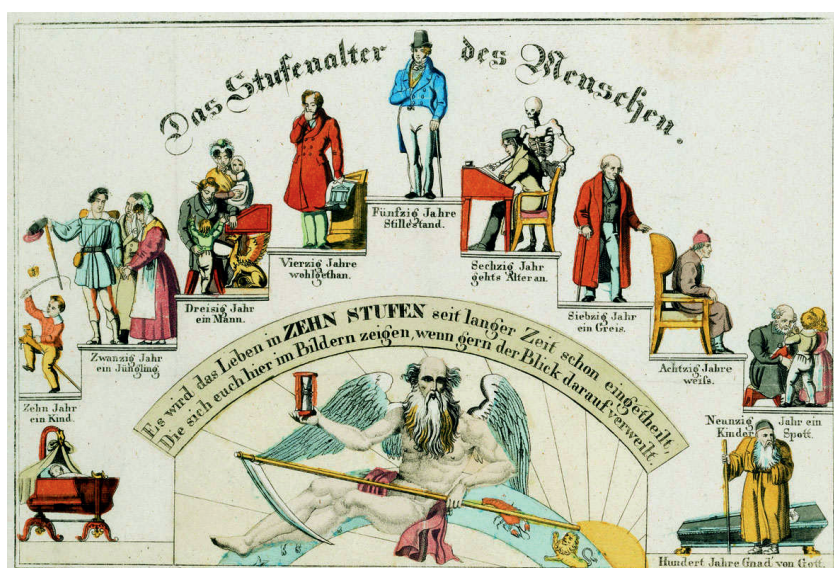 Das Stufenalter des Menschen.
Zehn Jahr
ein Kind.
Zwanzig Jahr
ein Jüngling
Dreisig Jahr
ein Mann.
Vierzig Jahre
wohlgethan.
Fünfzig Jahre
Stillestand.
Sechzig Jahr
gehts Alter an.
Siebzig Jahr
ein Greis.
Achtzig Jahre
weiſs.
Neunzig Jahr ein
Kinder Spott.
Hundert Jahre Gnad' von Gott.
Es wird das Leben in ZEHN STUFEN seit langer Zeit schon eingetheilt,
Die sich euch hier im Bildern zeigen, wenn gern der Blick darauf verweilt.